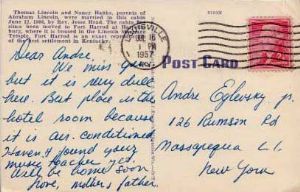 Thomas Lincoln and Nancy Hanks, parents of
Abraham Lincoln, were married in this cabin
June 12, 1806, by Rev. Jesse Head. The cabin
has been moved to Fort Harrod at Harrods-
burg, where it is found in the Lincoln Marriage
Temple. Fort Harrod is an exact
of the first settlement in Kentucky.
16
PM
1957
KY.
POST CARD
Dear Andre,
We miss you
but it is very dull
here. Best place is the
hotel room because
it is air. conditioned.
Haven't found your
music teacher yet.
Will be home soon
love, mother & father.
Andre Eglevsky jr.
126 Rumson Rd
Massapequa L.I
New York